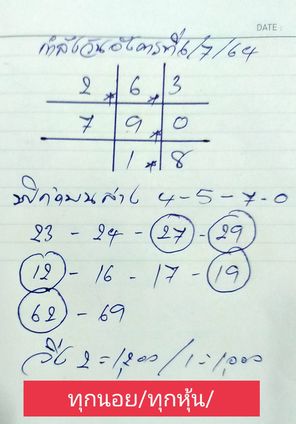 DATE :
กำลังวันอังคารที่ 6/7/64
2 . 6 . 3
7 9 . 0
1 . 8
4-5-7-0
23 - 24 - 27 - 29
12 - 16 - 17 - 19
62 - 69
วิ่ง 2 = 1,200 / 1 = 1,000
ทุกนอย/ทุกหุ้น/